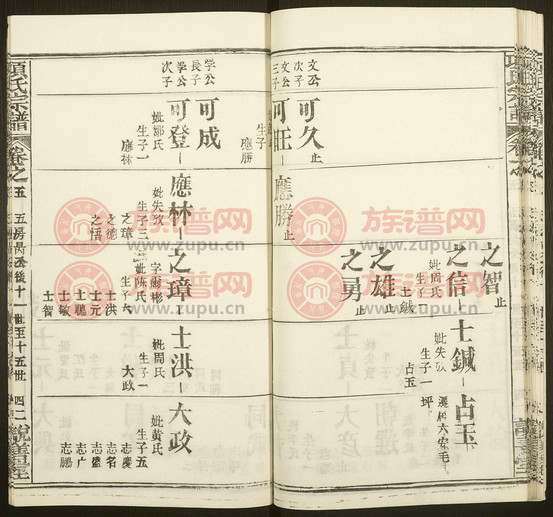 文公
三子
可久止
文公
次子
可旺
生子一
應勝
學公
長子
可成
學公
次子
可登
妣鄒氏
生子一
應林
應勝止
應林
妣失攷
生子三
之璋
之德
之悟
之智止
之信
妣周氏
生子一
士鉞
之雄止
之勇止
之璋
字爾彬
妣陳氏
生子六
士洪
士元
士鵬
士敏
士智
士鉞
妣失攷
生子一
占玉
士洪
妣周氏
生子一
大政
占玉
遷居六安毛
坪
大政
妣黃氏
生子五
志慶
志名
志盛
志廣
志鵬
項氏宗譜
卷之五
五房昺丞後十一世至十五世
四二
族谱网
www.zupu.cn
族谱网
www.zupu.cn
族谱网
www.zupu.cn
族谱网
www.zupu.cn